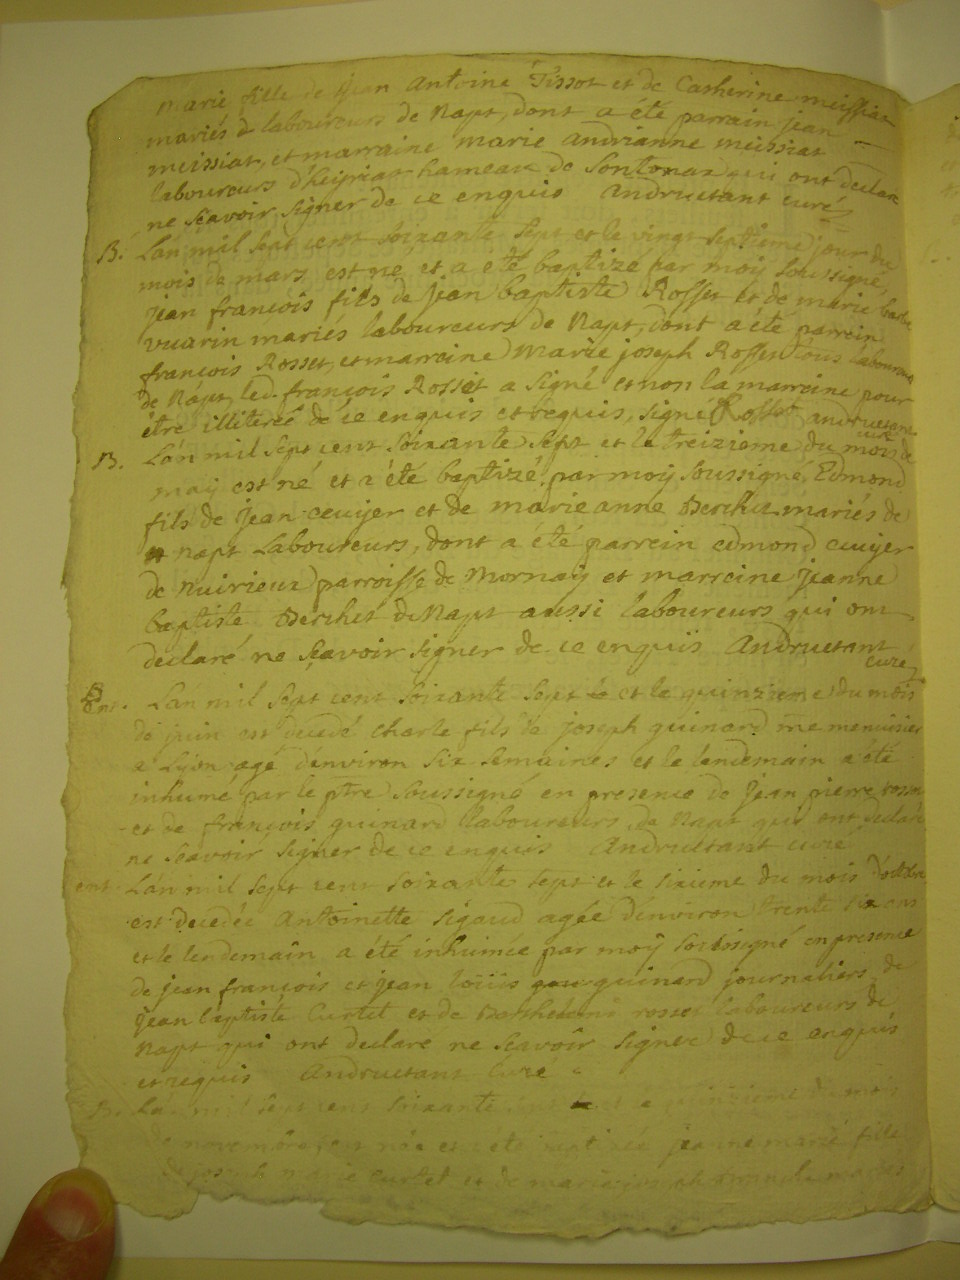 marie fille de jean Antoine Tissot et de Catherine meissiat
mariés d laboureurs de Napt, dont a été parrain jean
meissiat, et marraine marie andrianne meissiat
laboureurs d'heiriat hameau de Sontonax qui ont declaré
ne sçavoir signer de ce enquis Andruetant curé
B. Lan mil sept cent soixante sept et le vingt septieme jour du
mois de mars est né et a été baptizé par moy soussigné,
jean françois fils de jean baptiste Rosset et de marie
vuarin mariés laboureurs de Napt, dont a été parrein
françois Rosset, et marreine Marie joseph Rosset tous laboureurs
de Napt, led. françois Rosset a signé et non la marreine pour
être illiterée de ce enquis et requis, signé Rosset andruetant
curé
B. Lan mil sept cent soixante sept et le treizieme du mois de
may est né et a été baptizé par moy soussigné, Edmond
fils de jean cuvyer et de marieanne Berchet mariés de
napt Laboureurs, dont a été parrein edmond cuvyer
de Nuirieux parroisse de Mornay et marreine jeanne
baptiste Berchet de Napt aussi laboureurs qui ont
declaré ne sçavoir signer de ce enquis Andruetant
curé
Ent. Lan mil sept cent soixante sept et le quinzieme du mois
de juin est decedé charle fils de joseph guinard me menuisier
a Lyon agé d'environ six semaines et le lendemain a été
inhumé par le ptre soussigné en presence de jean pierre rosset
et de françois guinard laboureurs de Napt qui ont declaré
ne sçavoir signer de ce enquis Andruetant curé
ent. Lan mil sept cent soixante sept et le sixieme du mois d'octobre
est decedée Antoinette sigaud agée d'environ trente six ans
et le lendemain a été inhumée par moy soussigné en presence
de jean françois et jean loüis guinard journaliers de
jean baptiste Curtet et de rosset laboureurs de
Napt qui ont declaré ne sçavoir signer de ce enquis
et requis Andruetant Curé
B. Lan mil sept cent soixante sept et le quinzieme du mois
de novembre, est née et a été baptizée jeanne marie fille
de joseph marie curtet et de marie mariés